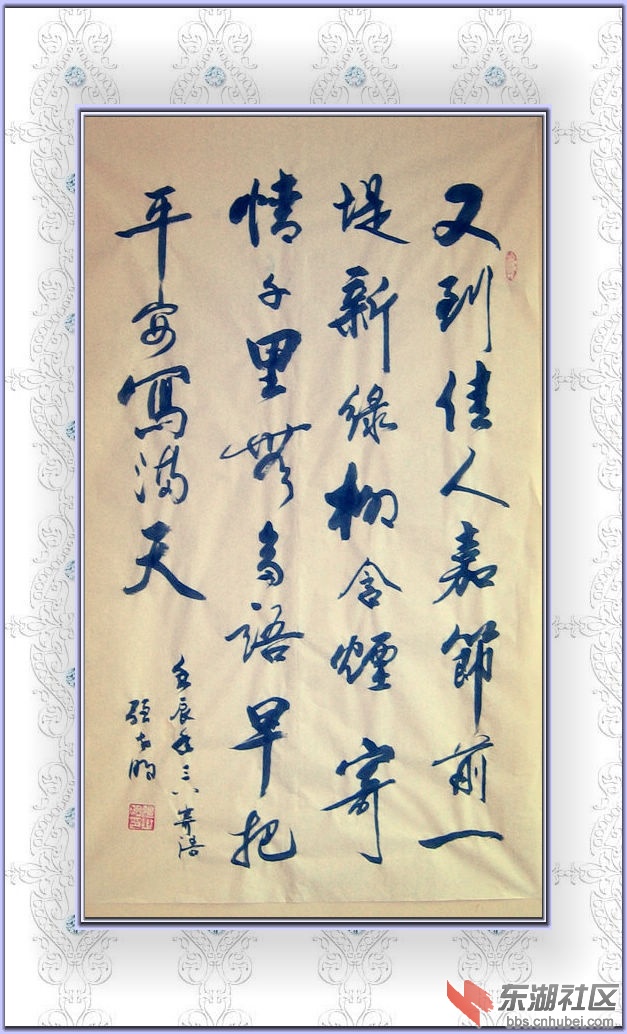 又到佳人嘉節前一
堤新綠柳含煙寄
情千里無多語早把
平安寫滿天
壬辰年三八寄語
东湖社区
bbs.cnhubei.com